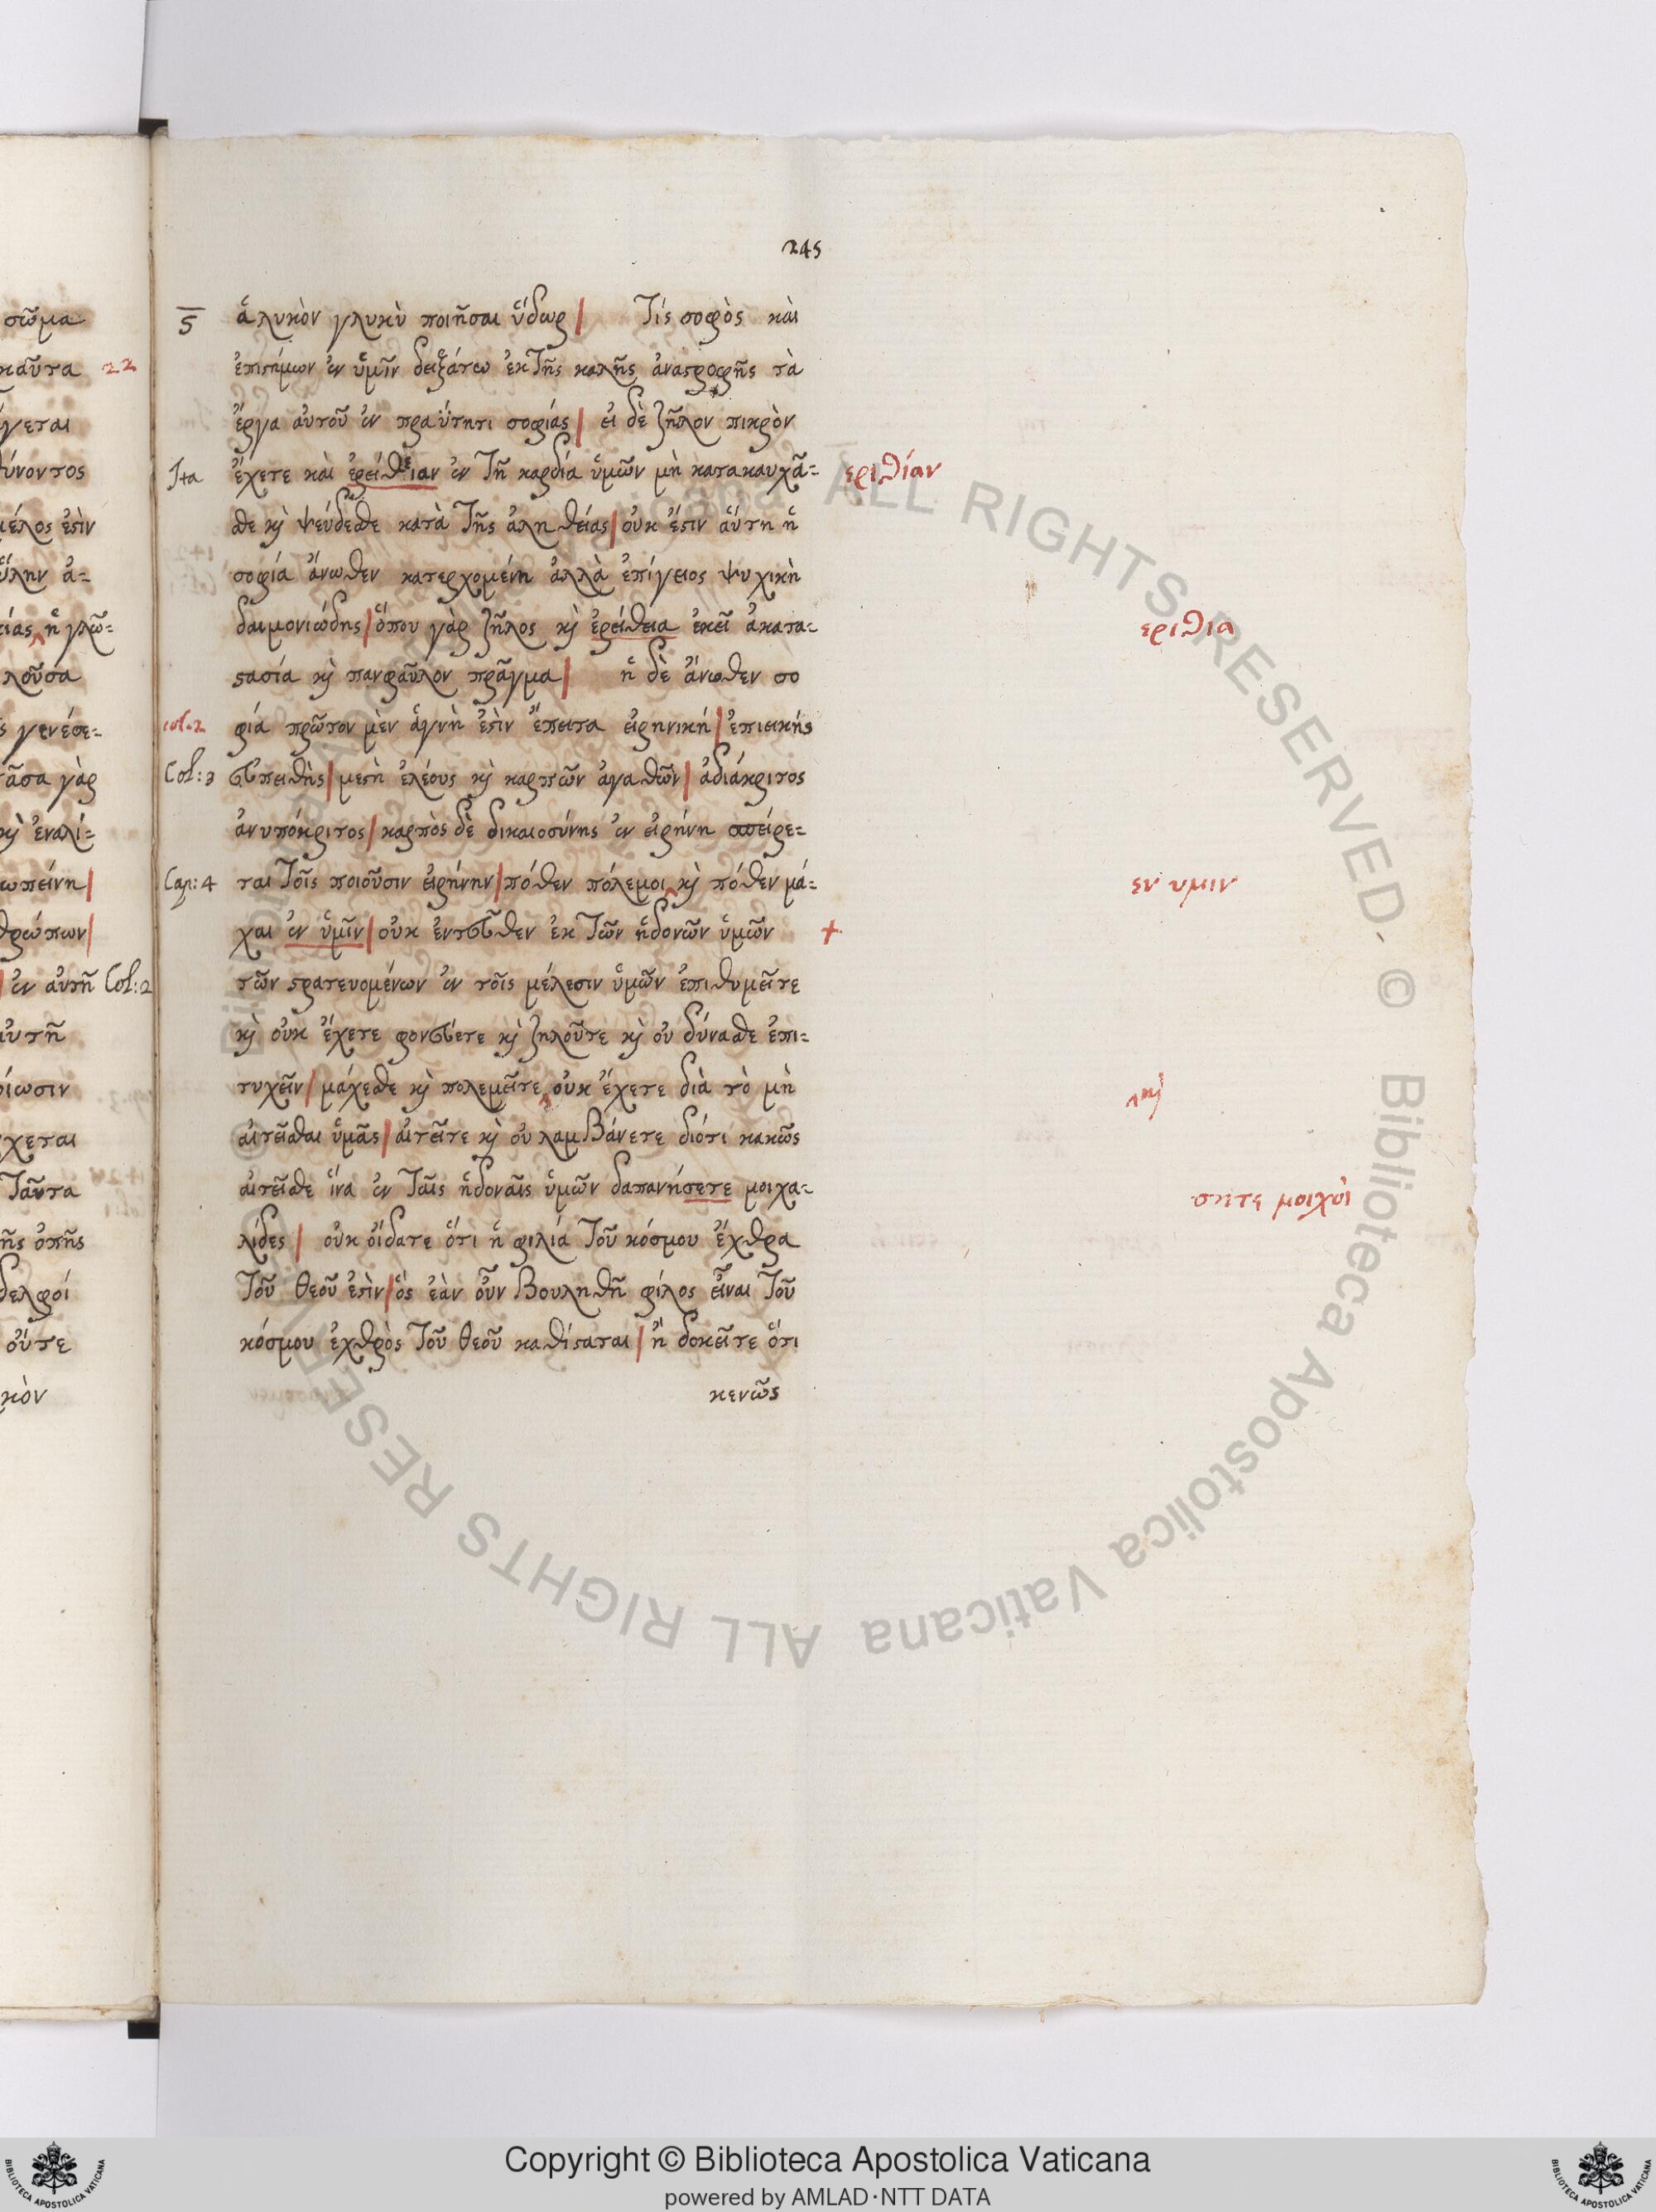 245
5 ἁλυκὸν γλυκὺ ποιῆσαι ὕδωρ | Τίς σοφὸς καὶ
ἐπιστήμων ἐν ὑμῖν δειξάτω ἐκ τῆς καλῆς ἀναστροφῆς τὰ
ἔργα αὐτοῦ ἐν πραΰτητι σοφίας | εἰ δὲ ζῆλον πικρὸν
Ita ἔχετε καὶ ἐρείθειαν ἐν τῇ καρδία ὑμῶν μὴ κατακαυχᾶ= εριθίαν
σθε κὶ ψεύδεσθε κατὰ τῆς ἀληθείας | οὐκ ἔστιν αὕτη ἡ
σοφία ἄνωθεν κατερχομένη ἀλλὰ ἐπίγειος ψυχικὴ
δαιμονιώδης | ὅπου γὰρ ζῆλος κὶ ἐρείθεια ἐκεῖ ἀκατα= εριθια
στασία κὶ πανφαῦλον πρᾶγμα | ἡ δὲ ἄνωθεν σο
col.2 φία πρῶτον μὲν ἁγνὴ ἐστὶν ἔπειτα εἰρηνική | ἐπιεικής
Col:3 εὐπειθὴς | μεστὴ ἐλέους κὶ καρπῶν ἀγαθῶν | ἀδιάκριτος
ἀνυπόκριτος | καρπὸς δὲ δικαιοσύνης ἐν εἰρήνη σπείρε=
Cap:4 ται τοῖς ποιοῦσιν εἰρήνην | πόθεν πόλεμοι κὶ πόθεν μά= εν υμιν
χαι ἐν ὑμῖν | οὐκ ἐντεῦθεν ἐκ τῶν ἡδονῶν ὑμῶν +
τῶν στρατευομένων ἐν τοῖς μέλεσιν ὑμῶν ἐπιθυμεῖτε
κὶ οὐκ ἔχετε φονεύετε κὶ ζηλοῦτε κὶ οὐ δύνασθε ἐπι=
τυχεῖν | μάχεσθε κὶ πολεμεῖτε οὐκ ἔχετε διὰ τὸ μὴ ^κὶ
αἰτεῖσθαι ὑμᾶς | αἰτεῖτε κὶ οὐ λαμβάνετε διότι κακῶς
αἰτεῖσθε ἵνα ἐν ταῖς ἡδοναῖς ὑμῶν δαπανήσετε μοιχα= σητε μοιχὸι
λίδες | οὐκ οἴδατε ὅτι ἡ φιλία τοῦ κόσμου ἔχθρα
τοῦ θεοῦ ἐστὶν | ὃς ἐὰν οὖν βουληθῆ φίλος εἶναι τοῦ
κόσμου ἐχθρὸς τοῦ θεοῦ καθίσταται | ἢ δοκεῖτε ὅτι
κενῶς
σῶμα
22
γεται
ύνοντος
μέλος ἐστὶν
ἡ γλῶ=
ᾶσα γὰρ
θρώπων |
ἐν αὐτῆ Col:2
χεται
ταῦτα
ῆς ὀπῆς
δελφοί
οὔτε
κὸν
© Biblioteca Apostolica Vaticana ALL RIGHTS RESERVED
Copyright © Biblioteca Apostolica Vaticana
powered by AMLAD·NTT DATA
BIBLIOTECA APOSTOLICA VATICANA
BIBLIOTECA APOSTOLICA VATICANA